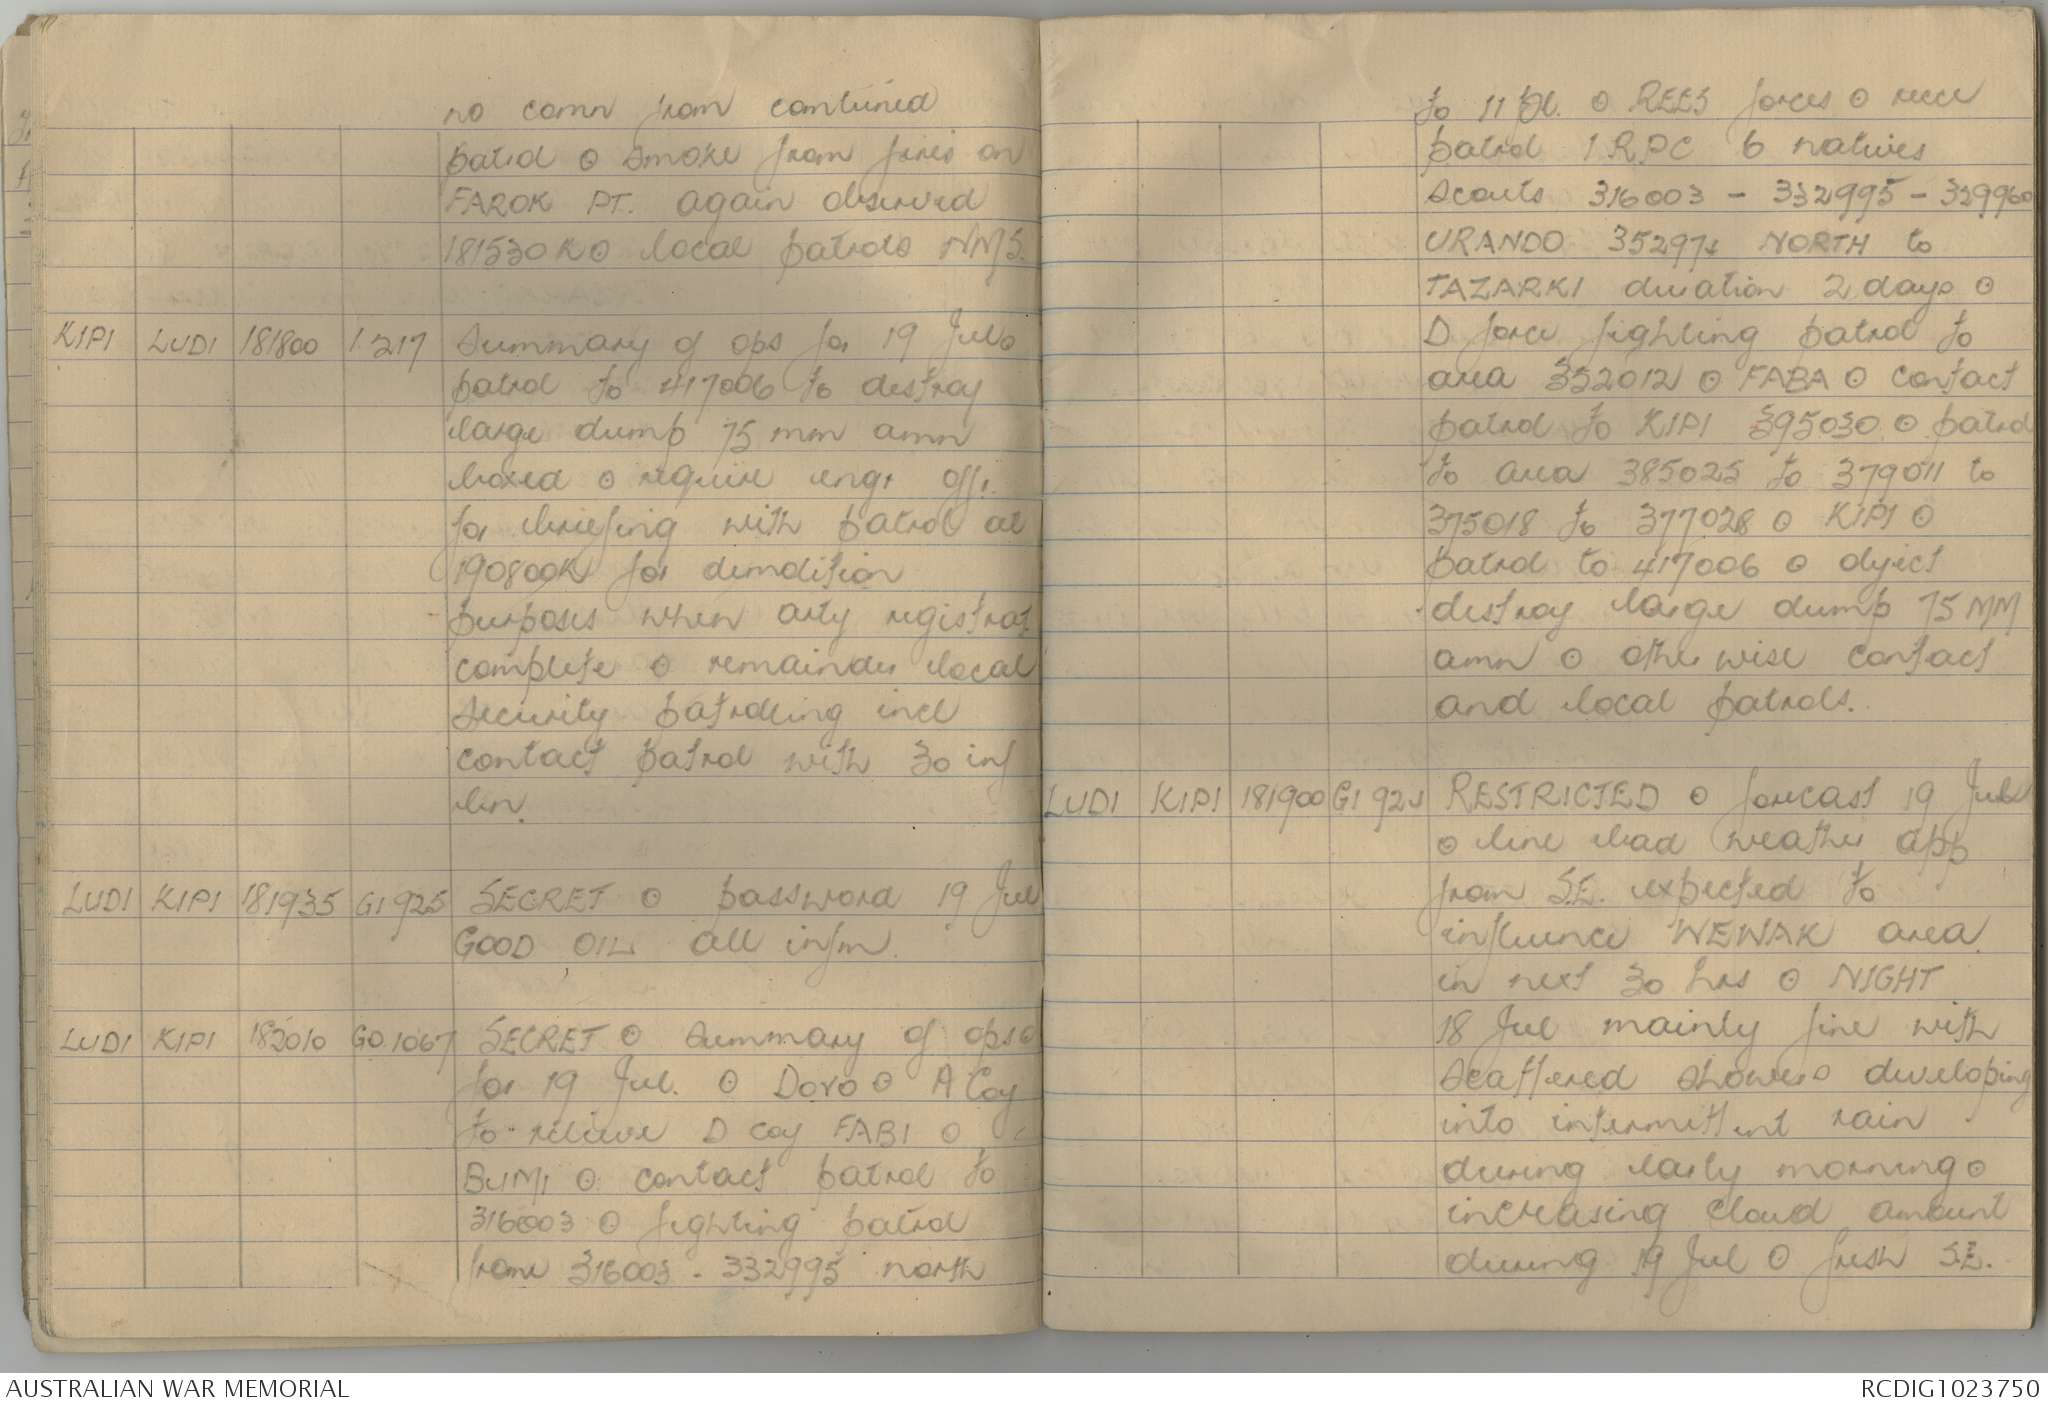 no comn from combined
patrol ⊙ smoke from fires on
FAROK PT. again observed
181530K ⊙ local patrols NMS.
KIPI LUDI 181800 I.217 Summary of ops for 19 Jul ⊙
patrol to 417006 to destroy
large dump 75 mm amn
boxed ⊙ require engr offr.
for briefing with patrol at
190800K for demolition
purposes when arty registrat
complete ⊙ remainder local
security patrolling incl
contact patrol with 30 inf
bn.
LUDI KIPI 181935 GI 925 SECRET ⊙ password 19 Jul
GOOD OIL all infm.
LUDI KIPI 182010 GO.1067 SECRET ⊙ summary of ops ⊙
for 19 Jul. ⊙ DOVO ⊙ A Coy
to relieve D coy FABI ⊙
BUMI ⊙ contact patrol to
316003 ⊙ fighting patrol
from 316003 - 332995 north
to 11 Pl. ⊙ REES forces ⊙ recce
patrol 1 RPC 6 natives
scouts 316003 - 332995 - 329960
URANDO 352974 NORTH to
TAZARKI duration 2 days ⊙
D force fighting patrol to
area 352012 ⊙ FABA ⊙ contact
patrol to KIPI 395030 ⊙ patrol
to area 385025 to 379011 to
375018 to 377028 ⊙ KIPI ⊙
patrol to 417006 ⊙ object
destroy large dump 75 MM
amn ⊙ otherwise contact
and local patrols.
LUDI KIPI 181900 GI 924 RESTRICTED ⊙ forcast 19 Jul
⊙ line bad weather app
from S.E. expected to
influence WEWAK area
in next 30 hrs ⊙ NIGHT
18 Jul mainly fine with
scattered showers developing
into intermittent rain
during early morning ⊙
increasing cloud amount
during 19 Jul ⊙ fresh S.E.
AUSTRALIAN WAR MEMORIAL
RCDIG1023750